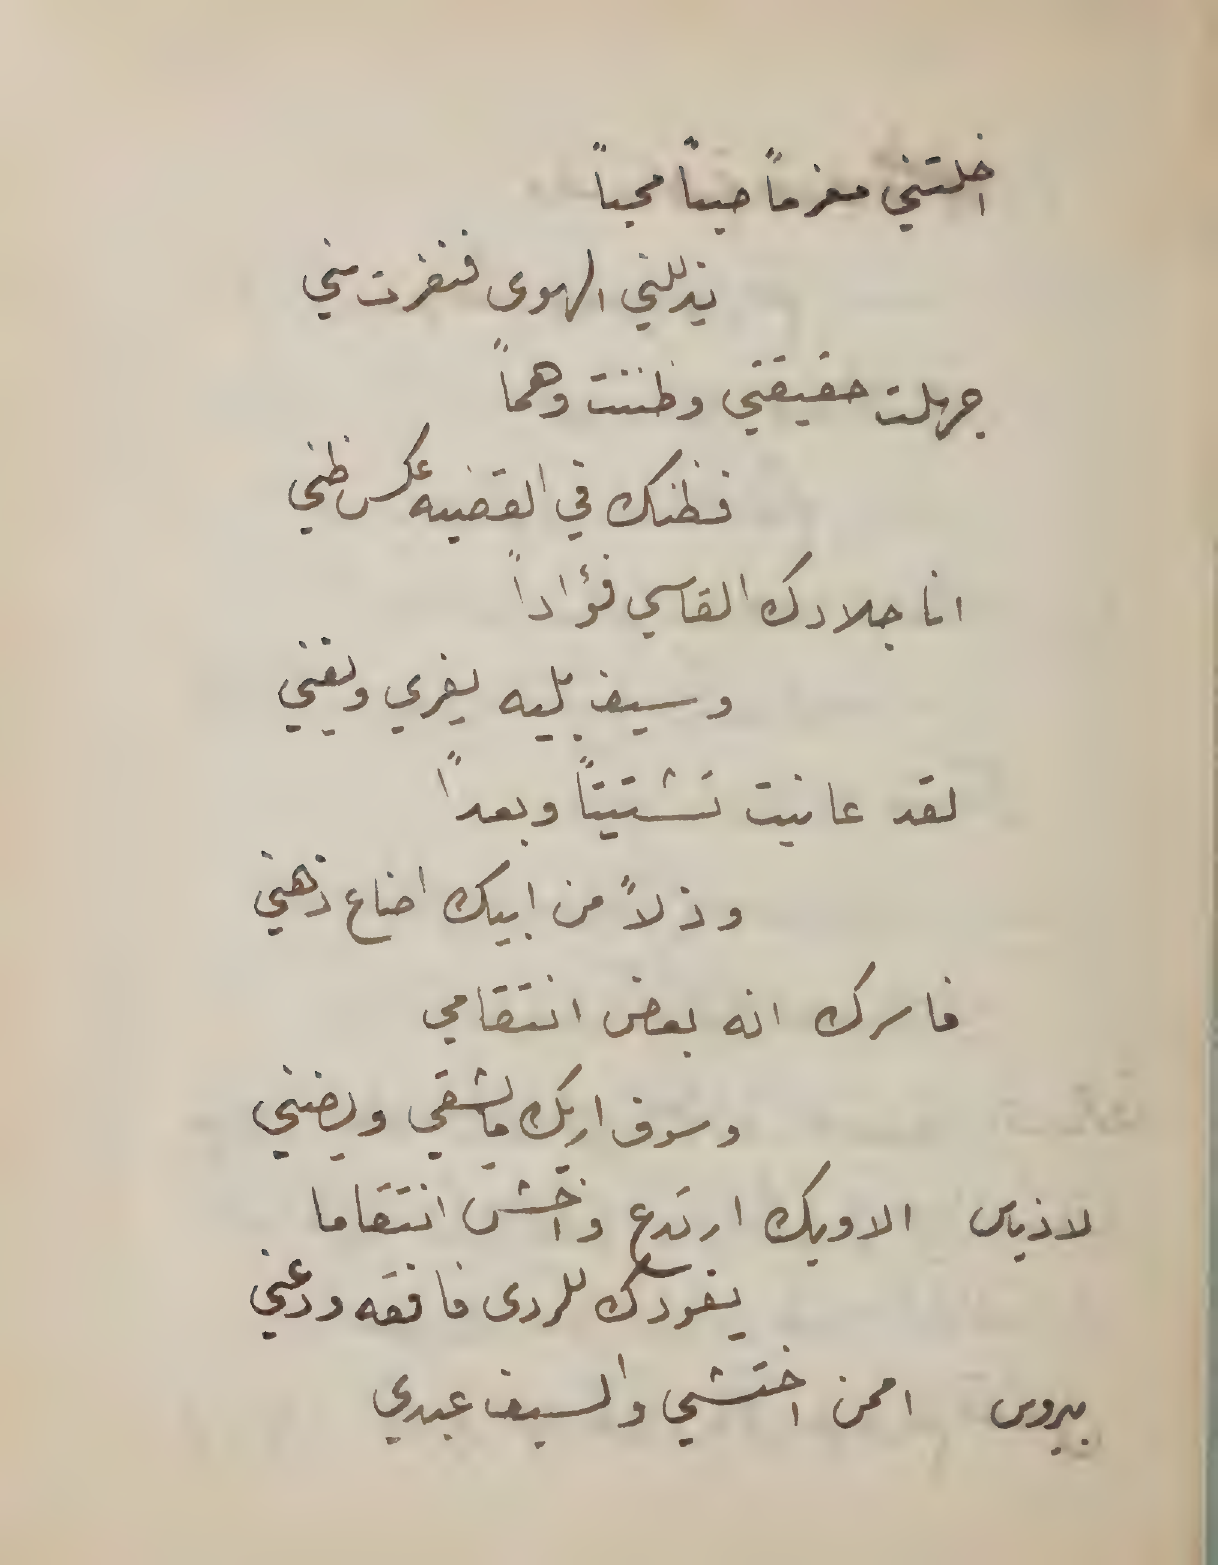 اخلتني مغرماً صباً محباً
يذللني الهوى فنفرت مني
جهلت حقيقتي وظننت وهماً
فظنك في القضيه عكس ظني
انا جلادك القاسي فؤاداً
وسيف بليه يفري ويفني
لقد عانيت تشتيتاً وبعداً
وذلاً من ابيك اضاع ذهني
فاسرك انه بعض انتقامي
وسوف اريك مايشقي ويضني
لاذياس الا ويك ارتدع واخش انتقاما
يقودك للردى فافقه ودعني
بيروس اممن اختشي والسيف عبدي